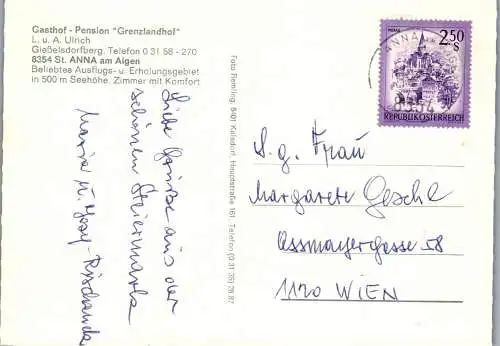 Gasthof - Pension "Grenzlandhof"
L. u. A. Ulrich
Gießelsdorfberg. Telefon 0 31 58 - 270
8354 St. ANNA am Aigen
Beliebtes Ausflugs- u. Erholungsgebiet
in 500 m Seehöhe. Zimmer mit Komfort
Liebe Grüße aus der
schönen Steiermark
Maria u. Josef
Foto Fleming, 8401 Kalsdorf, Hauptstraße 161, Telefon (0 31 35) 28 87
2.50
S
REPUBLIK ÖSTERREICH
ANNA
8354
S. g. Frau
Margarete Geschl
Assmayergasse 58
1120 WIEN